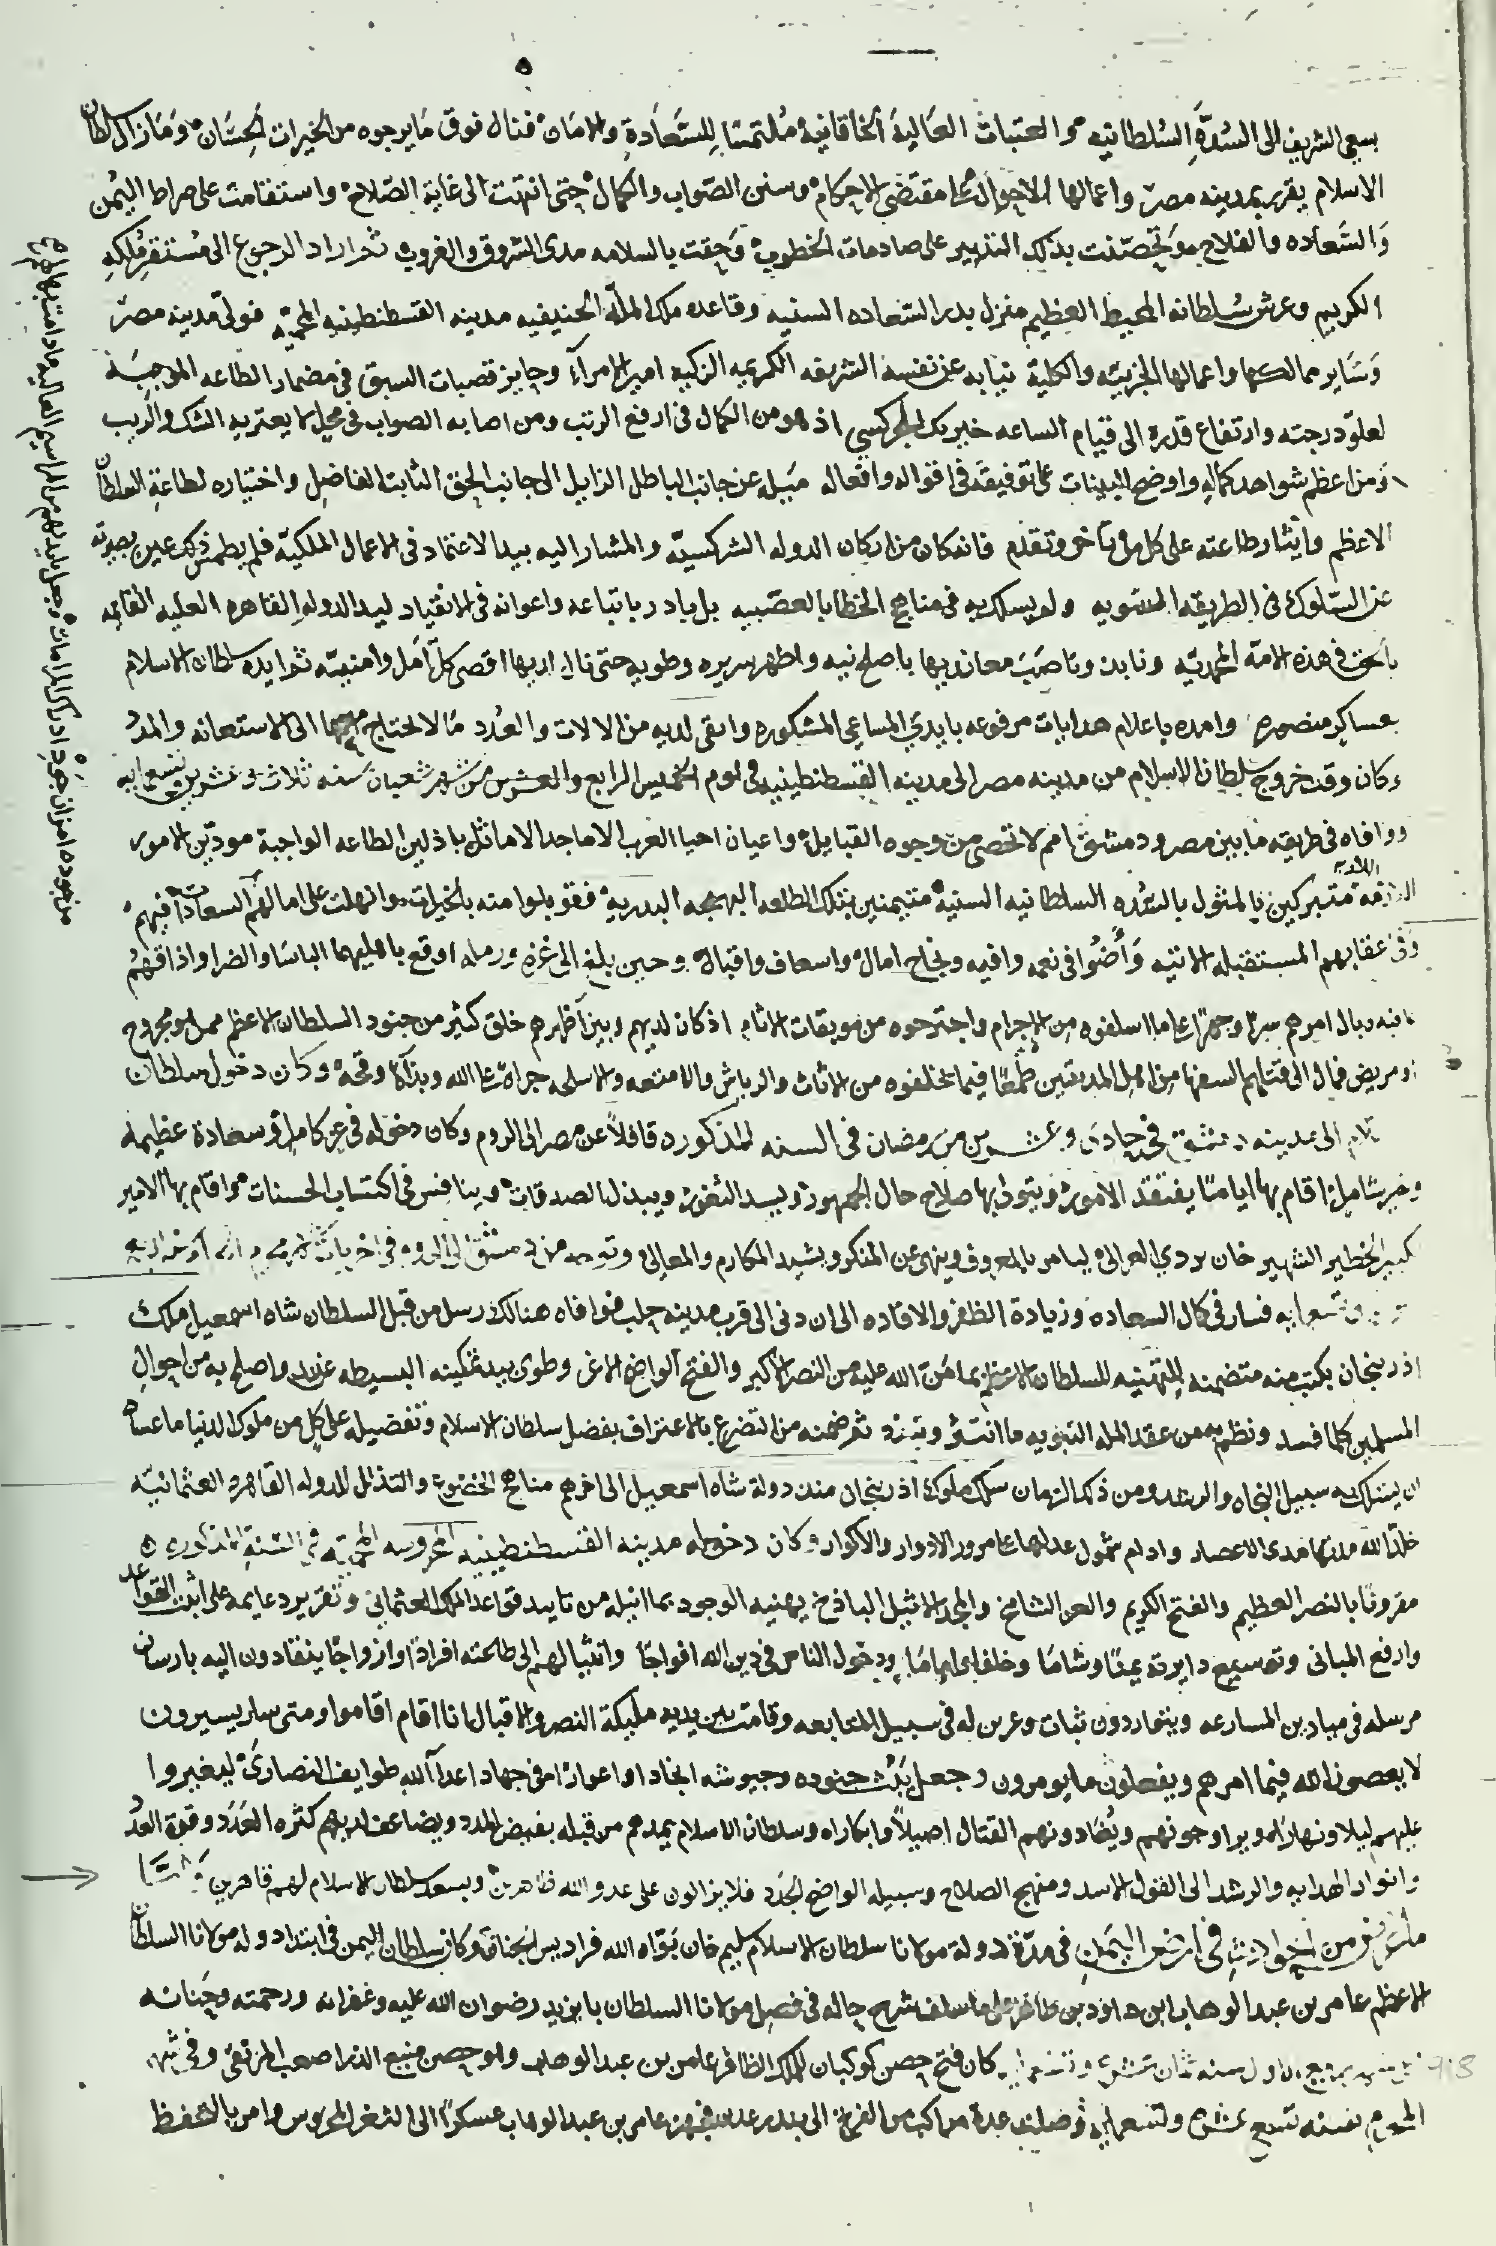 بسعى الشريف الى السُدَّةِ السُلطانيه والعتبات العالية الخاقانية مُلتمسًا لِلسَّعَادةِ والامان فنال فوق مَا يرجوه من الخيرات الحِسَان وَمَا زال سلطان
الاسلام يقرر بمدينه مصر واعمالها الاحوال علي مقتضى الاحكام وسنن الصّواب والكمال حتى انتهت الى غاية الصّلاح واستقامت على صراط اليُمن
وَالسَّعاده والفلاح وتحصّنت بذلك التدبير على صادمات الخطوب وَحقت بالسلامه مدى الشروق والغروب ثم اراد الرجوع الى مُستقر مُلكِهِ
الكريم وعرش سُلطانه المحيط العظيم منزل بدر السّعاده السنيه وقاعده ملك الملّه الحنيفيه مدينه القسطنطينيه المحميّه فولّى مدينه مصر
وَسَاير ممالكها واعمالها الجزييّه والكلية نيابه عن نفسه الشريفه الكريمه الزكيه امير الامرآء وحايز قصبات السبق في مضمار الطاعه الموجبَة
لعلوّ درجته وارتفاع قدره الى قيام الساعه خير بك الجركسي اذ هو من الكمال في ارفع الرتب ومن اصابه الصواب في محل لا يعتريه الشك والريب
وَمن اعظم شواهد كماله واوضح البينات على توفيقه في اقواله وافعاله مَيله عن جانب الباطل الزايل الى جانب الحق الثابت الفاضل واختياره لطاعة السلطان
الاعظم وايثار طاعته على كل من تأخر وتقدم فانه كان من اركان الدوله الشركسيّه والمشار اليه بيد الاعتماد في الاعمال الملكيّه فلم يطمس ذلك عين بصيرته
عن السّلوك في الطريقه السويه ولم يسلك به في مناهج الخطا بالعصبيه بل بادر باتباعه واعوانه في الانقياد ليد الدوله القاهره العليه القايمه
بالحق في هذه الامّه المحمديّه ونابذ وناصَبَ معانديها باصلح نيه واطهر سريره وطويه حتى نال اربها اقصى كل أمَل وامنيّه ثم ايده سلطان الاسلام
بعساكر منصوره وامده باعلام هدايات مرفوعه بايدي المساعي المشكوره وابقى لديه من الالات والعُدد مَا لا يحتاج معها الى الاستعانه والمدد
وكان وقت خروج سلطان الاسلام من مدينه مصر الى مدينه القسطنطينيه في يوم الخميس الرابع والعشرين من شهر شعبان سنه ثلاث وعشرين وتسعمايه
ووافاه في طريقه مَا بين مصر ودمشق امم لا تحصى من وجوه القبايل واعيان احيا العرب الاماجد الاماثل باذلين الطاعه الواجبة مودّين الامور
اللازمة متبركين بالمثول بالسّده السلطانيه السنية متيمنين بتلك الطلعه البهيجه البدرية فقوبلوا منه بالخيرات وانهلت على امالهم السعادات فيهم
وَفي اعقابهم المستقبله الاتيه وَأَضُوا في نعمه وافيه ونجاح امال واسعاف واقبال وحين بلغ الى غزه ورمله اوقع باهليهما الباسَا والضرا واذاقهم
عاقبه وبال امرهم سِرًّا وجهرًا علي ما اسلفوه من الاجرام واجترحوه من موبقات الاثام اذ كان لديهم وبين اظهرهم خلق كثير من جنود السلطان الاعظم ممن هو مجروح
او مريض فمال الى قتلهم السفها من اهل المدينتين طمعًا فيما يخلفوه من الاثاث والرياش والامتعه والاسلحه جراة على الله وبذلكا وقحة وكان دخول سلطان
الاسلام الى مدينه دمشق في حادى وعشرين من رمضان في السنه المذكوره قافلاً عن مصر الى الروم وكان دخوله في عزٍ كامل وسعادة عظيمه
وخير شامل اقام بها ايامًا يفتقد الامور ويتولى بها صلاح حال الجمهور ويسد الثغور ويبذل الصدقات وينافس في اكتساب الحسنات واقام بها الامير
الكبير الخطير الشهير خان بردي الغزالي ليامر بالمعروف وينهى عن المنكر ويشيد المكارم والمعالي وتوجه من دمشق الى الروم في اخريات
وتسعمايه فسار في كمال السعاده وزيادة الظفر والافاده الى ان دنى الى قرب مدينه حلب فوافاه هنالك رسل من قبل السلطان شاه اسمعيل ملك
اذربيجان بكتب منه متضمنه للتهنيه للسلطان الاعظم بما مَنّ الله عليه من النصر الاكبر والفتح الواضح الاغر وطوى بيد تمكينه البسيطه عن يد واصلح به من احوال
المسلمين كلما فسد ونظم به من عقد المله النبويه ما انتثر وتبدّد ثم ضمنه من التضرع بالاعتراف بفضل سلطان الاسلام وتفضيله على كل من ملوك الدنيا ما عساه
ان يسلك به سبيل النجاه والرشد ومن ذلك الزمان سلك ملوك اذربيجان منذ دولة شاه اسمعيل الى اخرهم مناهج الخضوع والتذلل للدوله القاهره العثمانيّه
خلّد الله ملكها مدى الاعصار وادام شمول عدلها على مرور الادوار والاكوار وكان دخوله مدينه القسطنطينيه المحروسه المحميّه في السّنة المذكوره
مقرونًا بالنصر العظيم والفتح الكريم والعز الشامخ والمجد الاثيل الباذخ يهنيه الوجود بما انيله من تاييد قواعد الملك العثماني وتقرير دعايمه على اثبت القواعد
وارفع المباني وتوسيع دايرته يمنًا وشامًا وخلفا وامامًا ودخول الناس في دين الله افواجًا وانثيالهم الى طاعته افرادًا وازواجًا ينقادون اليه بارسان
مرسله في ميادين المسارعه ويتواردون ثبات وعزين له في سبيل المتابعه وقامت بين يديه مليكة النصر والاقبال اذا اقام اقاموا ومتى سار يسيرون
لا يعصون الله فيما امرهم ويفعلون ما يومرون وجعل يَبُثُّ جنوده وجيوشه انجادا واغوارًا في جهاد اعدآ الله طوايف النصارى ليغيروا
عليهم ليلا ونهارًا ويراوحونهم ويُغادونهم القتال اصيلاً وابكارا وسلطان الاسلام يمدهم من قبله بفيض المدد ويضاعف لديهم كثره العَدَد وقوة العُدد
وانوار الهدايه والرشد الى القول الاسد ومنهج الصلاح وسبيله الواضح الجَدَد فلا يزالون على عدو الله ظاهرين وبسعد سلطان الاسلام لهم قاهرين وَأَمَّا
ما عرض من الحوادث في ارض اليَمَن في مدّة دولة مولانا سلطان الاسلام سليم خان بَوّاه الله فراديس الجنان وكان سلطان اليمن في ابتداء دوله مولانا السلطان
الاعظم عامر بن عبد الوهاب ابن داود بن طاهر على ما سلف شرح حاله في فصل مولانا السلطان بايزيد رضوان الله عليه وغفرانه ورحمته وحنانه
ربيع الاول سنه ثمان عشره وتسعمايه كان فتح حصن كوكبان للملك الظافر عامر بن عبد الوهاب وهو حصن منيع الذرا صعب المرتقى وفي شهر
المحرم سنه تسع عشره وتسعمايه وصلت عدة مراكب من الفرنج الى بندر عدن فجهز عامر بن عبد الوهاب عسكرًا الى الثغر المحروس وامر بالتحفظ
918
من جوده امزان جَوْد ادراك المرامات وجعل بايديهم من المراسيم العاليه ما دامت بها لهم